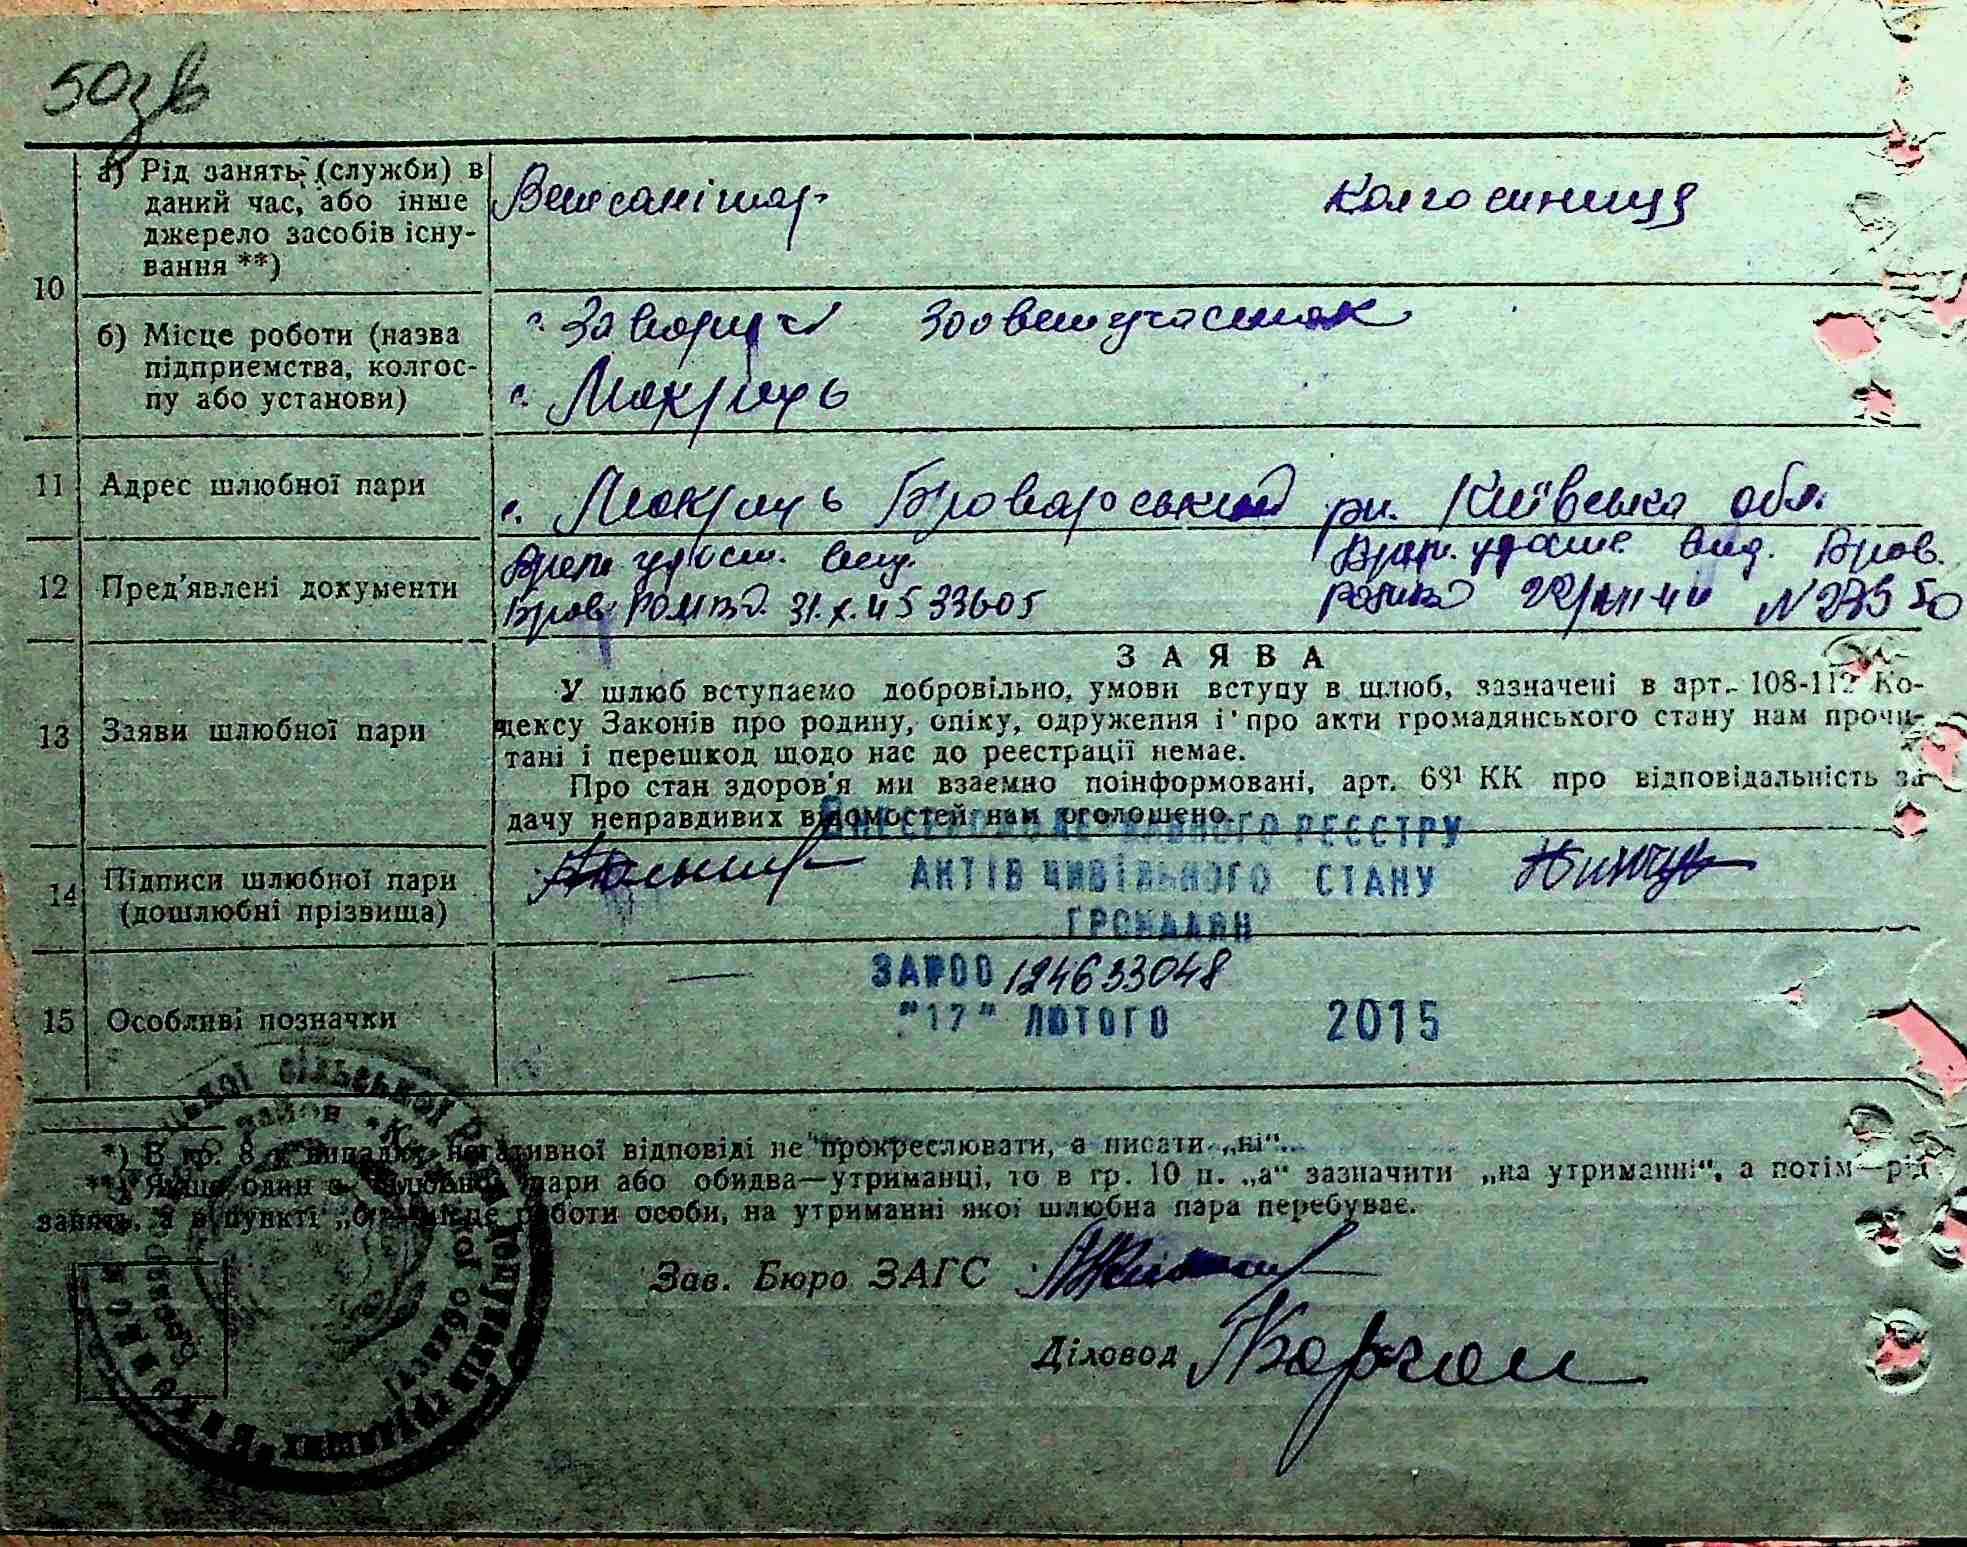 50зв
а) Рід занять (служби) в
даний час, або інше
джерело засобів існу-
вання **)
Ветсанітар
Колгоспниця
10
б) Місце роботи (назва
підприємства, колгос-
пу або установи)
с. Заворичі Зооветучасток
с. Мокрець
11 Адрес шлюбної пари
с. Мокрець Броварський рн. Київська обл.
12 Пред'явлені документи
Врем. удост. вид.
Бров. РОМВД. 31.X.45 33605
Врем. удост. вид. Бров.
N 27550
13 Заяви шлюбної пари
ЗАЯВА
У шлюб вступаємо добровільно, умови вступу в шлюб, зазначені в арт. 108-112 Ко-
дексу Законів про родину, опіку, одруження і про акти громадянського стану нам прочи-
тані і перешкод щодо нас до реєстрації немає.
Про стан здоров'я ми взаємно поінформовані, арт. 68¹ КК про відповідальність за
дачу неправдивих відомостей нам оголошено.
14 Підписи шлюбної пари
(дошлюбні прізвища)
ДЕРЖАВНОГО РЕЄСТРУ
АКТІВ ЦИВІЛЬНОГО СТАНУ
ГРОМАДЯН
15 Особливі позначки
—
ЗА №00 124633048
"17" ЛЮТОГО 2015
*) В гр. 8 у випадку негативної відповіді не прокреслювати, а писати „ні“.
**) Якщо один з шлюбної пари або обидва—утриманці, то в гр. 10 п. „а“ зазначити „на утриманні“, а потім—рід
занять, а в пункті „б“—місце роботи особи, на утриманні якої шлюбна пара перебуває.
Зав. Бюро ЗАГС
Діловод